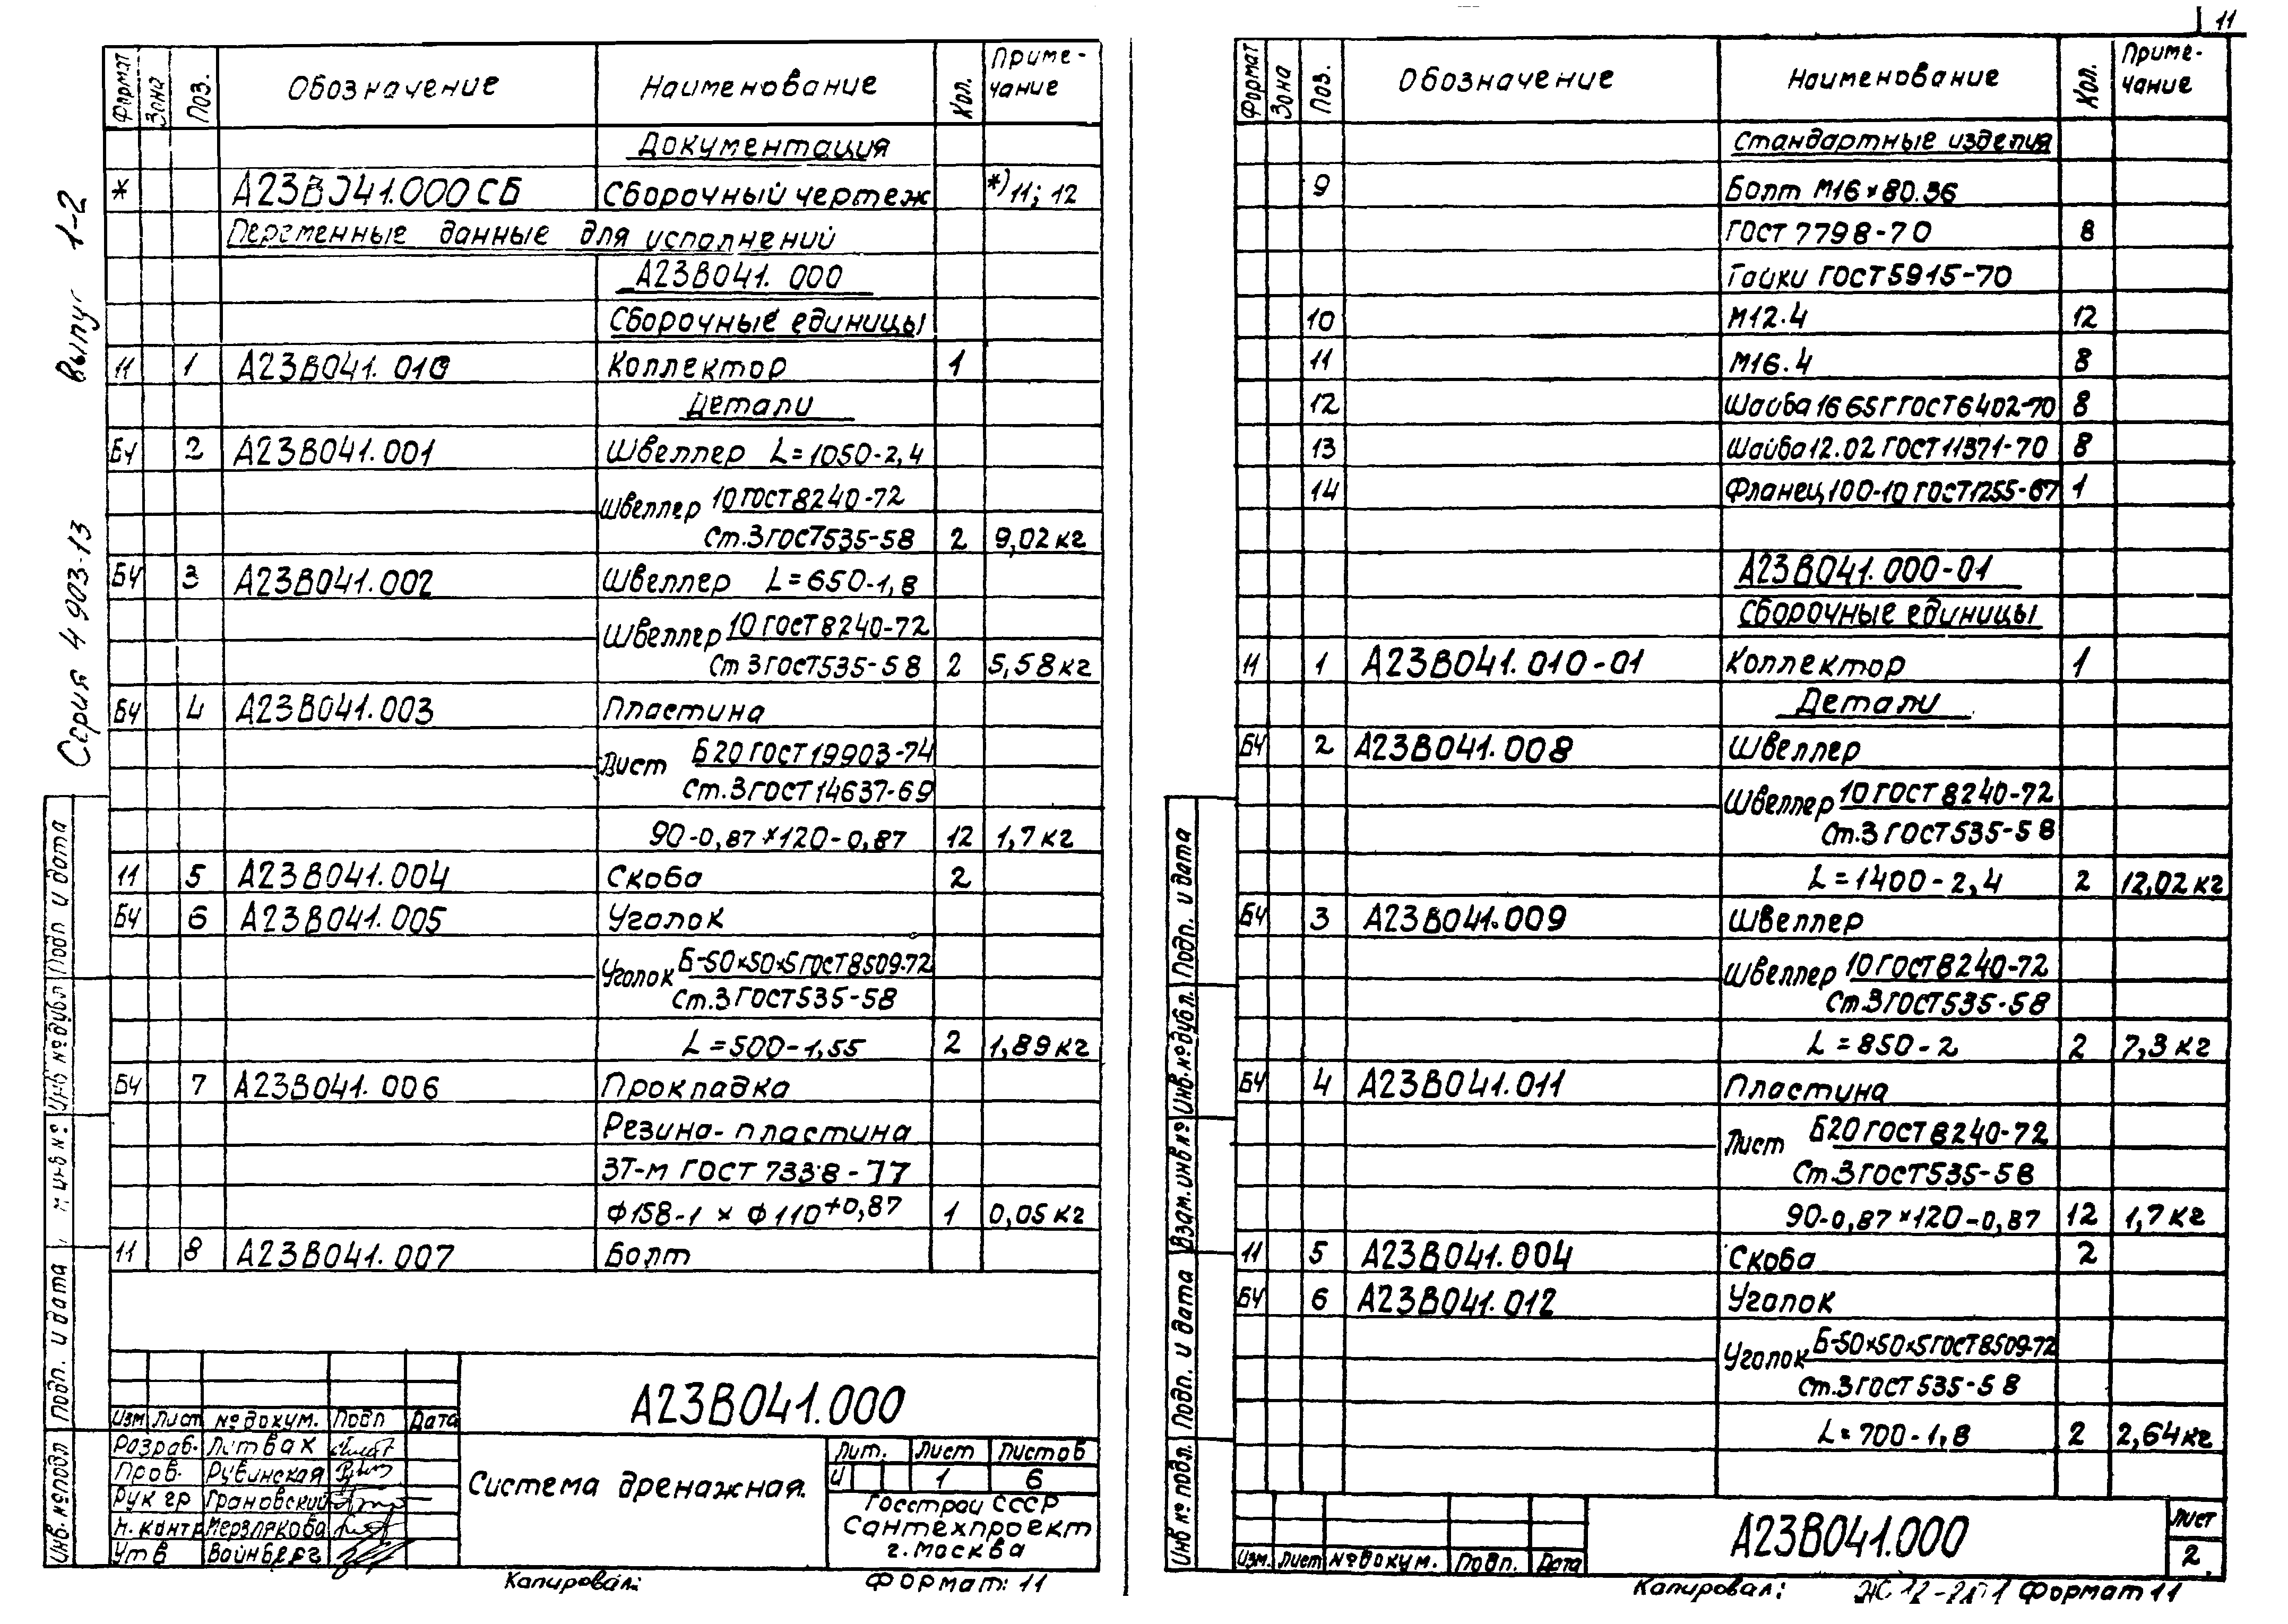 11
Серия 4 903-13
1-2
Формат Зона Поз. Обозначение Наименование Кол. Приме-
чание
Документация
* А23В041.000СБ Сборочный чертеж *) 11; 12
Переменные данные для исполнений
А23В041. 000
Сборочные единицы
11 1 А23В041. 010 Коллектор 1
Детали
БЧ 2 А23В041.001 Швеллер L=1050-2,4
Швеллер 10 ГОСТ 8240-72
Ст.3 ГОСТ 535-58 2 9,02 кг
БЧ 3 А23В041.002 Швеллер L=650-1,8
Швеллер 10 ГОСТ 8240-72
Ст 3 ГОСТ 535-58 2 5,58 кг
БЧ 4 А23В041.003 Пластина
Лист Б20 ГОСТ 19903-74
Ст.3 ГОСТ 14637-69
90-0,87×120-0,87 12 1,7 кг
11 5 А23В041.004 Скоба 2
БЧ 6 А23В041.005 Уголок
Уголок Б-50×50×5 ГОСТ 8509-72
Ст.3 ГОСТ 535-58
L=500-1,55 2 1,89 кг
БЧ 7 А23В041.006 Прокладка
Резина-пластина
3Т-м ГОСТ 7338-77
Ф158-1 × Ф110+0,87 1 0,05 кг
11 8 А23В041.007 Болт
Изм Лист № докум. Подп Дата
Разраб. Литвак
Пров. Рувинская
Рук гр Грановский
Н. контр Мерзлякова
Утв Вайнберг
А23В041.000
Система дренажная.
Лит. Лист Листов
И 1 6
Госстрой СССР
Сантехпроект
г. Москва
Копировал: Формат: 11
Подп и дата
Инв № дубл
инв №
Подп. и дата
Инв. № подл
Формат Зона Поз. Обозначение Наименование Кол. Приме-
чание
Стандартные изделия
9 Болт М16×80.36
ГОСТ 7798-70 8
Гайки ГОСТ 5915-70
10 М12.4 12
11 М16.4 8
12 Шайба 16 65Г ГОСТ 6402-70 8
13 Шайба 12.02 ГОСТ 11371-70 8
14 Фланец 100-10 ГОСТ 1255-67 1
А23В041.000-01
Сборочные единицы
11 1 А23В041.010-01 Коллектор 1
Детали
БЧ 2 А23В041.008 Швеллер
Швеллер 10 ГОСТ 8240-72
Ст.3 ГОСТ 535-58
L=1400-2,4 2 12,02 кг
БЧ 3 А23В041.009 Швеллер
Швеллер 10 ГОСТ 8240-72
Ст.3 ГОСТ 535-58
L=850-2 2 7,3 кг
БЧ 4 А23В041.011 Пластина
Лист Б20 ГОСТ 8240-72
Ст.3 ГОСТ 535-58
90-0,87×120-0,87 12 1,7 кг
11 5 А23В041.004 Скоба 2
БЧ 6 А23В041.012 Уголок
Уголок Б-50×50×5 ГОСТ 8509-72
Ст.3 ГОСТ 535-58
L=700-1,8 2 2,64 кг
Изм. Лист № докум. Подп. Дата
А23В041.000
Лист
2
Копировал: Формат 11
Подп. и дата
Инв. № дубл.
Взам. инв №
Подп. и дата
Инв № подл.